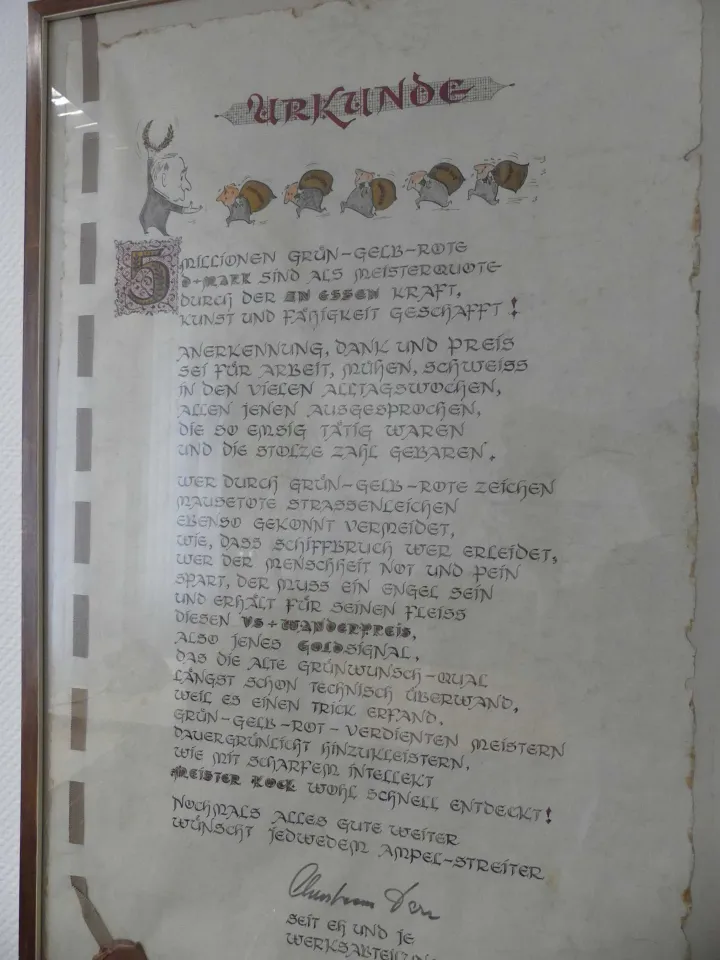 URKUNDE
5 MILLIONEN GRÜN-GELB-ROTE
D-MARK SIND ALS MEISTERQUOTE
DURCH DER AN ESSEN KRAFT,
KUNST UND FÄHIGKEIT GESCHAFFT!
ANERKENNUNG, DANK UND PREIS
SEI FÜR ARBEIT, MÜHEN, SCHWEISS
IN DEN VIELEN ALLTAGSWOCHEN,
ALLEN JENEN AUSGESPROCHEN,
DIE SO EMSIG TÄTIG WAREN
UND DIE STOLZE ZAHL GEBAREN.
WER DURCH GRÜN-GELB-ROTE ZEICHEN
MAUSETOTE STRASSENLEICHEN
EBENSO GEKONNT VERMEIDET,
WIE, DASS SCHIFFBRUCH WER ERLEIDET,
WER DER MENSCHHEIT NOT UND PEIN
SPART, DER MUSS EIN ENGEL SEIN
UND ERHÄLT FÜR SEINEN FLEISS
DIESEN VS+WANDERPREIS,
ALSO JENES GOLDSIGNAL,
DAS DIE ALTE GRÜNWUNSCH-QUAL
LÄNGST SCHON TECHNISCH ÜBERWAND,
WEIL ES EINEN TRICK ERFAND,
GRÜN-GELB-ROT-VERDIENTEN MEISTERN
DAUERGRÜNLICHT HINZUKLEISTERN,
WIE MIT SCHARFEM INTELLEKT
MEISTER KOCK WOHL SCHNELL ENTDECKT!
NOCHMALS ALLES GUTE WEITER
WÜNSCHT JEDWEDEM AMPEL-STREITER
SEIT EH UND JE